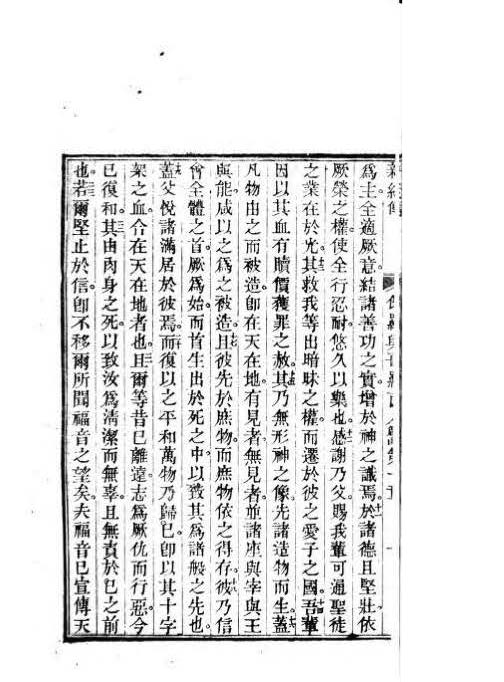 爲主全適厥意結諸善功之實增於神之識焉於諸德且堅壯依
厥榮之權使全行忍耐悠久以樂也感謝乃父賜我輩可通聖徒
之業在於光其救我等出暗昧之權而遷於彼之愛子之國吾輩
因以其血有贖價獲罪之赦其乃無形神之像先諸造物而生蓋
凡物由之而被造卽在天在地有見者無見者並諸座與宰與王
與能咸以之爲之被造且彼先於庶物而庶物依之得存彼乃信
會全體之首厥爲始而首生出於死之中以致其爲諸般之先也
蓋父悅諸滿居於彼焉而復以之平和萬物乃歸已卽以其十字
架之血合在天在地者也且爾等昔已離遠志爲厥仇而行惡今
已復和其由肉身之死以致汝爲清潔而無辜且無責於已之前
也若爾堅止於信卽不移爾所聞福音之望矣夫福音已宣傳天